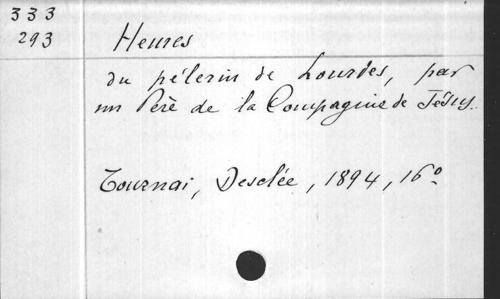 333
293
Heures
du pélerin de Lourdes, par
un Père de la Compagnie de Jésus.
Tournai, Desclée, 1894, 16º